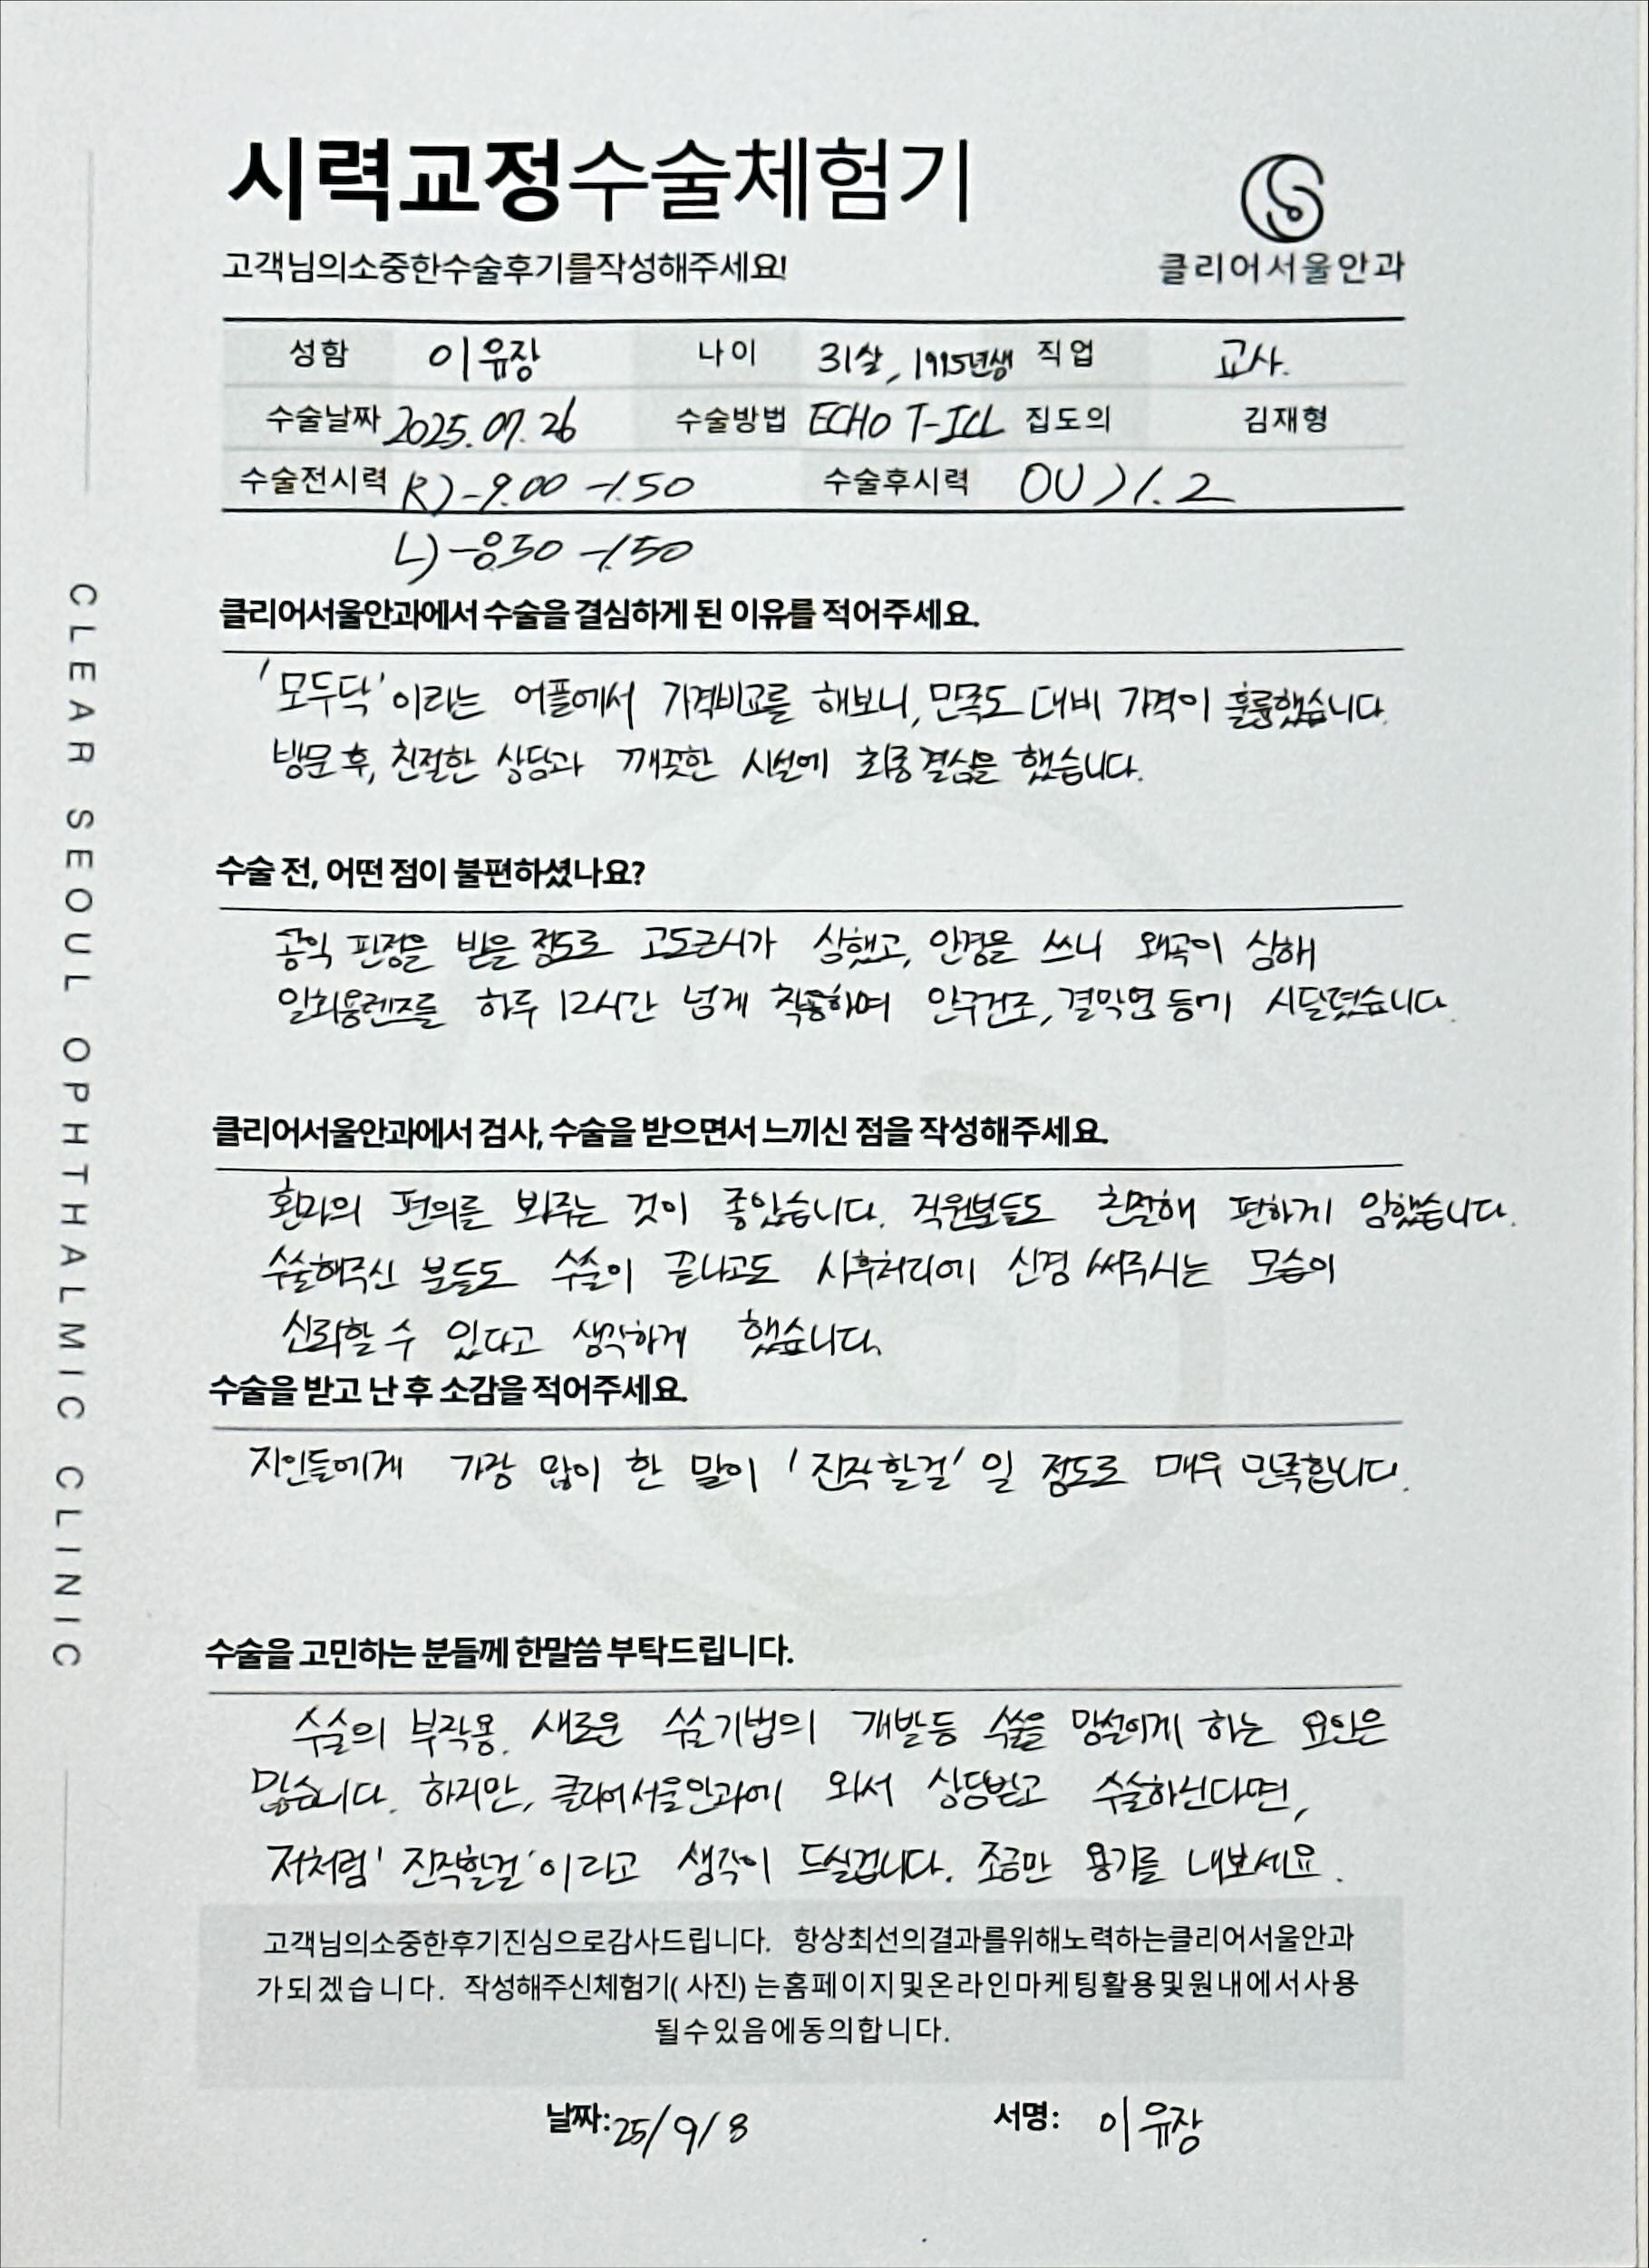 시력교정수술체험기
고객님의소중한수술후기를작성해주세요!
클리어서울안과
성함 이유장 나이 31살, 1995년생 직업 교사.
수술날짜 2025.07.26 수술방법 ECHO T-ICL 집도의 김재형
수술전시력 R)-9.00 -1.50 수술후시력 OU)1.2
L)-8.50 -1.50
클리어서울안과에서 수술을 결심하게 된 이유를 적어주세요.
'모두닥'이라는 어플에서 가격비교를 해보니, 만족도 대비 가격이 훌륭했습니다.
방문 후, 친절한 상담과 깨끗한 시설에 최종 결심을 했습니다.
수술 전, 어떤 점이 불편하셨나요?
공익 판정을 받을 정도로 고도근시가 심했고, 안경을 쓰니 왜곡이 심해
일회용렌즈를 하루 12시간 넘게 착용하여 안구건조, 결막염 등에 시달렸습니다.
클리어서울안과에서 검사, 수술을 받으면서 느끼신 점을 작성해주세요.
환자의 편의를 봐주는 것이 좋았습니다. 직원분들도 친절해 편하게 임했습니다.
수술해주신 분들도 수술이 끝나고도 사후처리에 신경 써주시는 모습이
신뢰할 수 있다고 생각하게 했습니다.
수술을 받고 난 후 소감을 적어주세요.
지인들에게 가장 많이 한 말이 '진작할걸' 일 정도로 매우 만족합니다.
수술을 고민하는 분들께 한말씀 부탁드립니다.
수술의 부작용, 새로운 수술기법의 개발등 수술을 망설이게 하는 요인은
많습니다. 하지만, 클리어서울안과에 와서 상담받고 수술하신다면,
저처럼 '진작할걸'이라고 생각이 드실겁니다. 조금만 용기를 내보세요.
고객님의소중한후기진심으로감사드립니다. 항상최선의결과를위해노력하는클리어서울안과
가되겠습니다. 작성해주신체험기( 사진) 는홈페이지및온라인마케팅활용및원내에서사용
될수있음에동의합니다.
날짜: 25/9/8 서명: 이유장
CLEAR SEOUL OPHTHALMIC CLINIC